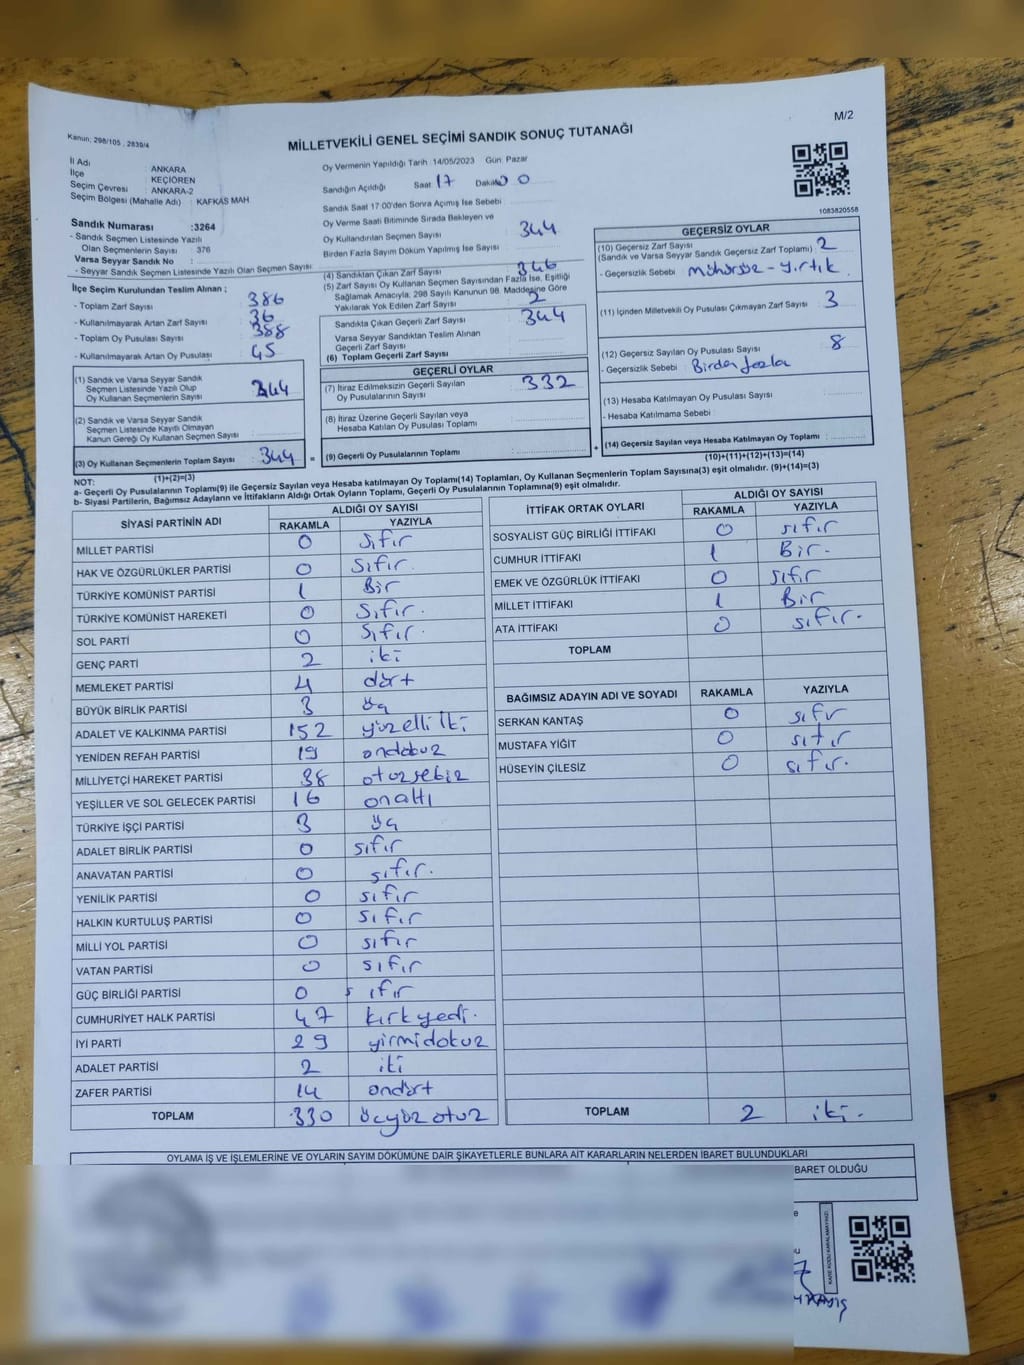 Kanun: 298/105, 2839/4
M/2
MİLLETVEKİLİ GENEL SEÇİMİ SANDIK SONUÇ TUTANAĞI
İl Adı : ANKARA
İlçe : KEÇİÖREN
Seçim Çevresi : ANKARA-2
Seçim Bölgesi (Mahalle Adı) : KAFKAS MAH
Sandık Numarası :3264
- Sandık Seçmen Listesinde Yazılı
Olan Seçmenlerin Sayısı : 376
Varsa Seyyar Sandık No :
- Seyyar Sandık Seçmen Listesinde Yazılı Olan Seçmen Sayısı:
İlçe Seçim Kurulundan Teslim Alınan ;
- Toplam Zarf Sayısı : 386
- Kullanılmayarak Artan Zarf Sayısı : 36
- Toplam Oy Pusulası Sayısı : 388
- Kullanılmayarak Artan Oy Pusulası : 45
(1) Sandık ve Varsa Seyyar Sandık
Seçmen Listesinde Yazılı Olup
Oy Kullanan Seçmenlerin Sayısı : 344
(2) Sandık ve Varsa Seyyar Sandık
Seçmen Listesinde Kayıtlı Olmayan
Kanun Gereği Oy Kullanan Seçmen Sayısı :
(3) Oy Kullanan Seçmenlerin Toplam Sayısı : 344 =
(1)+(2)=(3)
Oy Vermenin Yapıldığı Tarih :14/05/2023 Gün: Pazar
Sandığın Açıldığı Saat: 17 Dakika: 00
Sandık Saat 17:00'den Sonra Açımış İse Sebebi :
Oy Verme Saati Bitiminde Sırada Bekleyen ve
Oy Kullandırılan Seçmen Sayısı : 344
Birden Fazla Sayım Döküm Yapılmış İse Sayısı :
(4) Sandıktan Çıkan Zarf Sayısı : 346
(5) Zarf Sayısı Oy Kullanan Seçmen Sayısından Fazla İse, Eşitliği
Sağlamak Amacıyla, 298 Sayılı Kanunun 98. Maddesine Göre
Yakılarak Yok Edilen Zarf Sayısı : 2
Sandıkta Çıkan Geçerli Zarf Sayısı : 344
Varsa Seyyar Sandıktan Teslim Alınan
Geçerli Zarf Sayısı :
(6) Toplam Geçerli Zarf Sayısı :
GEÇERLİ OYLAR
(7) İtiraz Edilmeksizin Geçerli Sayılan
Oy Pusulalarının Sayısı : 332
(8) İtiraz Üzerine Geçerli Sayılan veya
Hesaba Katılan Oy Pusulası Toplamı :
(9) Geçerli Oy Pusulalarının Toplamı : +
1083820558
GEÇERSİZ OYLAR
(10) Geçersiz Zarf Sayısı
(Sandık ve Varsa Seyyar Sandık Geçersiz Zarf Toplamı) : 2
- Geçersizlik Sebebi : Mühürsüz - yırtık
(11) İçinden Milletvekili Oy Pusulası Çıkmayan Zarf Sayısı : 3
(12) Geçersiz Sayılan Oy Pusulası Sayısı : 8
- Geçersizlik Sebebi : Birden fazla
(13) Hesaba Katılmayan Oy Pusulası Sayısı :
- Hesaba Katılmama Sebebi :
(14) Geçersiz Sayılan veya Hesaba Katılmayan Oy Toplamı :
(10)+(11)+(12)+(13)=(14)
NOT:
a- Geçerli Oy Pusulalarının Toplamı(9) ile Geçersiz Sayılan veya Hesaba katılmayan Oy Toplamı(14) Toplamları, Oy Kullanan Seçmenlerin Toplam Sayısına(3) eşit olmalıdır. (9)+(14)=(3)
b- Siyasi Partilerin, Bağımsız Adayların ve İttifakların Aldığı Ortak Oyların Toplamı, Geçerli Oy Pusulalarının Toplamına(9) eşit olmalıdır.
SİYASİ PARTİNİN ADI ALDIĞI OY SAYISI
RAKAMLA YAZIYLA
MİLLET PARTİSİ 0 Sıfır
HAK VE ÖZGÜRLÜKLER PARTİSİ 0 Sıfır
TÜRKİYE KOMÜNİST PARTİSİ 1 Bir
TÜRKİYE KOMÜNİST HAREKETİ 0 Sıfır.
SOL PARTİ 0 Sıfır.
GENÇ PARTİ 2 iki
MEMLEKET PARTİSİ 4 dört
BÜYÜK BİRLİK PARTİSİ 3 üç
ADALET VE KALKINMA PARTİSİ 152 yüzelli iki
YENİDEN REFAH PARTİSİ 19 ondokuz
MİLLİYETÇİ HAREKET PARTİSİ 38 otuzsekiz
YEŞİLLER VE SOL GELECEK PARTİSİ 16 onaltı
TÜRKİYE İŞÇİ PARTİSİ 3 üç
ADALET BİRLİK PARTİSİ 0 sıfır
ANAVATAN PARTİSİ 0 sıfır.
YENİLİK PARTİSİ 0 sıfır
HALKIN KURTULUŞ PARTİSİ 0 sıfır
MİLLİ YOL PARTİSİ 0 sıfır
VATAN PARTİSİ 0 sıfır
GÜÇ BİRLİĞİ PARTİSİ 0 sıfır
CUMHURİYET HALK PARTİSİ 47 kırkyedi.
İYİ PARTİ 29 yirmidokuz
ADALET PARTİSİ 2 iki
ZAFER PARTİSİ 14 ondört
TOPLAM 330 üçyüz otuz
İTTİFAK ORTAK OYLARI ALDIĞI OY SAYISI
RAKAMLA YAZIYLA
SOSYALİST GÜÇ BİRLİĞİ İTTİFAKI 0 sıfır
CUMHUR İTTİFAKI 1 Bir.
EMEK VE ÖZGÜRLÜK İTTİFAKI 0 sıfır
MİLLET İTTİFAKI 1 Bir
ATA İTTİFAKI 0 sıfır.
TOPLAM
BAĞIMSIZ ADAYIN ADI VE SOYADI RAKAMLA YAZIYLA
SERKAN KANTAŞ 0 sıfır
MUSTAFA YİĞİT 0 sıfır
HÜSEYİN ÇİLESİZ 0 sıfır.
TOPLAM 2 iki.
OYLAMA İŞ VE İŞLEMLERİNE VE OYLARIN SAYIM DÖKÜMÜNE DAİR ŞİKAYETLERLE BUNLARA AİT KARARLARIN NELERDEN İBARET BULUNDUKLARI
BARET OLDUĞU